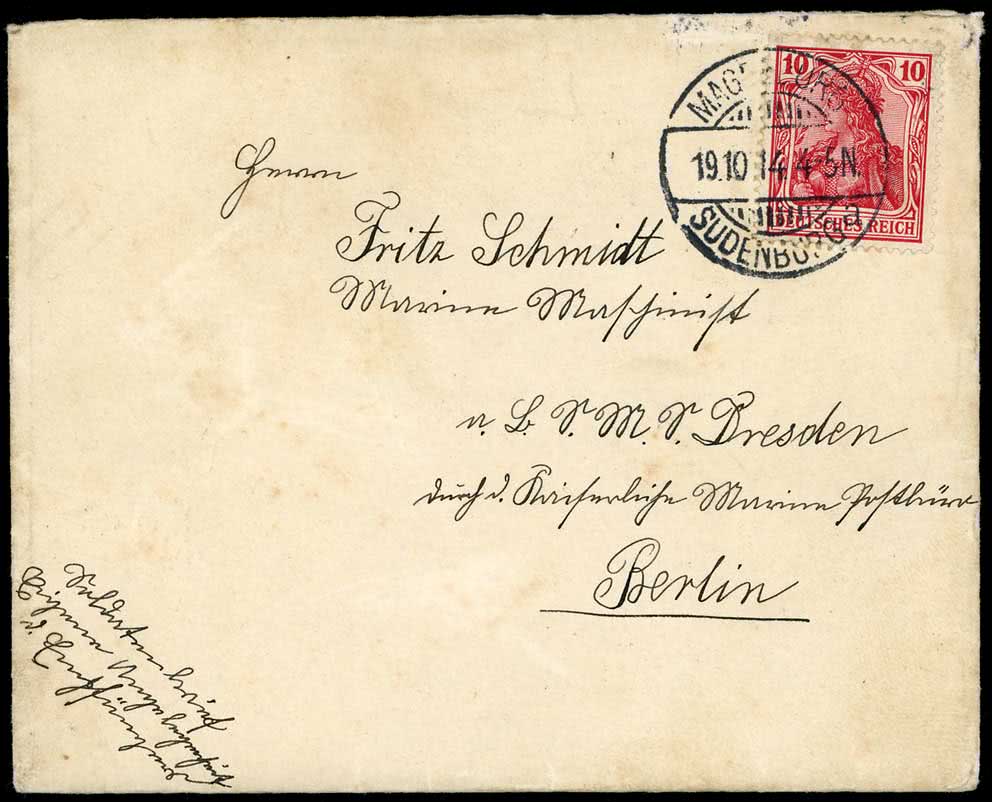 10 10
DEUTSCHES REICH
MAGDEBURG
19.10 14. 4-5N.
SUDENBURG a
Herrn
Fritz Schmidt
Marine Maschinist
a. B. S. M. S. Dresden
durch d. Kaiserliche Marine Postbüro
Berlin
Soldatenbrief
Eigene Angelegenheit
d. Empfängers